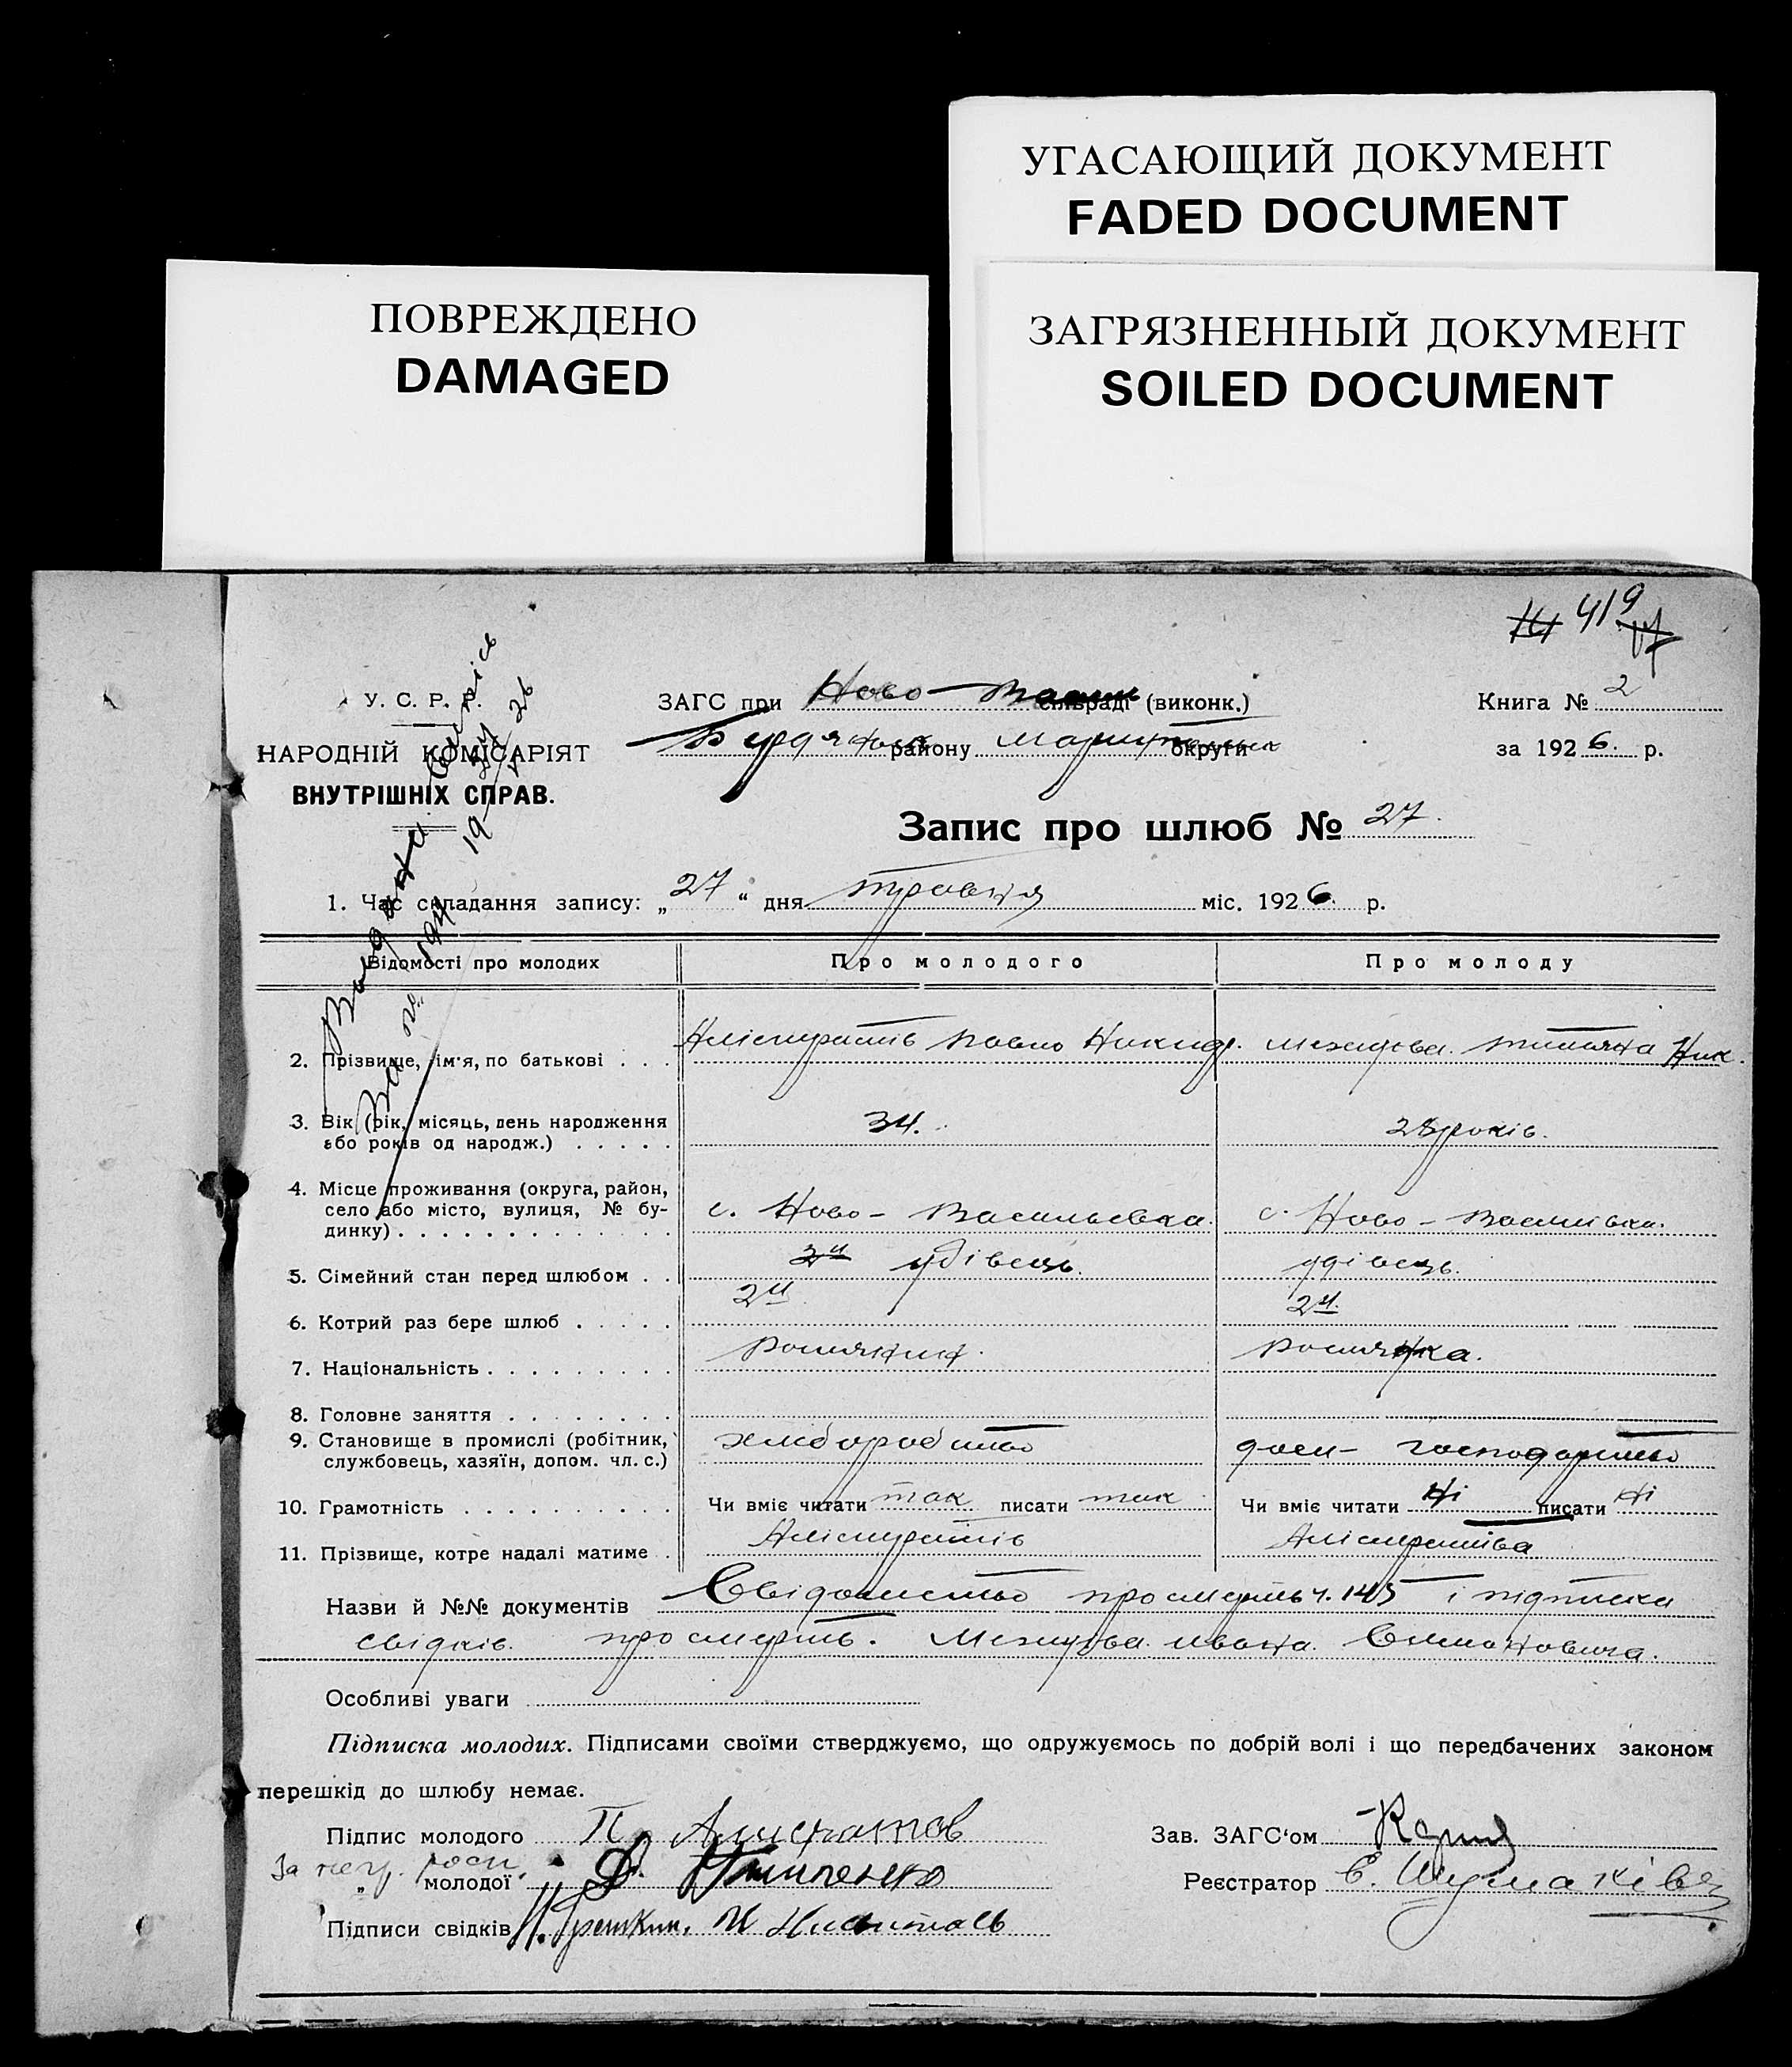 УГАСАЮЩИЙ ДОКУМЕНТ
FADED DOCUMENT
ПОВРЕЖДЕНО
DAMAGED
ЗАГРЯЗНЕННЫЙ ДОКУМЕНТ
SOILED DOCUMENT
419
У. С. Р. Р.
НАРОДНІЙ КОМІСАРІЯТ
ВНУТРІШНІХ СПРАВ.
ЗАГС при Ново- сільраді (виконк.)
району округи
Книга № 2
за 1926. р.
Запис про шлюб № 27.
1. Час складання запису: „27“ дня травня міс. 1926. р.
Відомості про молодих Про молодого Про молоду
2. Прізвище, ім'я, по батькові . . . Алістратів Павло Никид. Межуєва. Титяна Ник.
3. Вік (рік, місяць, день народження
або років од народж.) . . . . . 34. 28 років.
4. Місце проживання (округа, район,
село або місто, вулиця, № бу-
динку) . . . . . . . . . . . . . с. Ново- Васильевка. с. Ново- Василівка.
5. Сімейний стан перед шлюбом . . удівець. удівець.
6. Котрий раз бере шлюб . . . . . 2й 2й.
7. Національність . . . . . . . . . Росиянин. Росиянка.
8. Головне заняття . . . . . . . .
9. Становище в промислі (робітник,
службовець, хазяїн, допом. чл. с.) хліборобство дом- господарство
10. Грамотність . . . . . . . . . . Чи вміє читати так писати так Чи вміє читати ні писати ні
11. Прізвище, котре надалі матиме . Алістратів Алістратіва
Назви й №№ документів Свідоцтво про смерть ч. 145 і підписка
свідків. про смерть. Межуєва Ивана. Симоновича.
Особливі уваги
Підписка молодих. Підписами своїми стверджуємо, що одружуємось по добрій волі і що передбачених законом
перешкід до шлюбу немає.
Підпис молодого П. Алистратов
Зав. ЗАГС'ом
За негр. роспи.
„ молодої
Реєстратор Є.
Підписи свідків